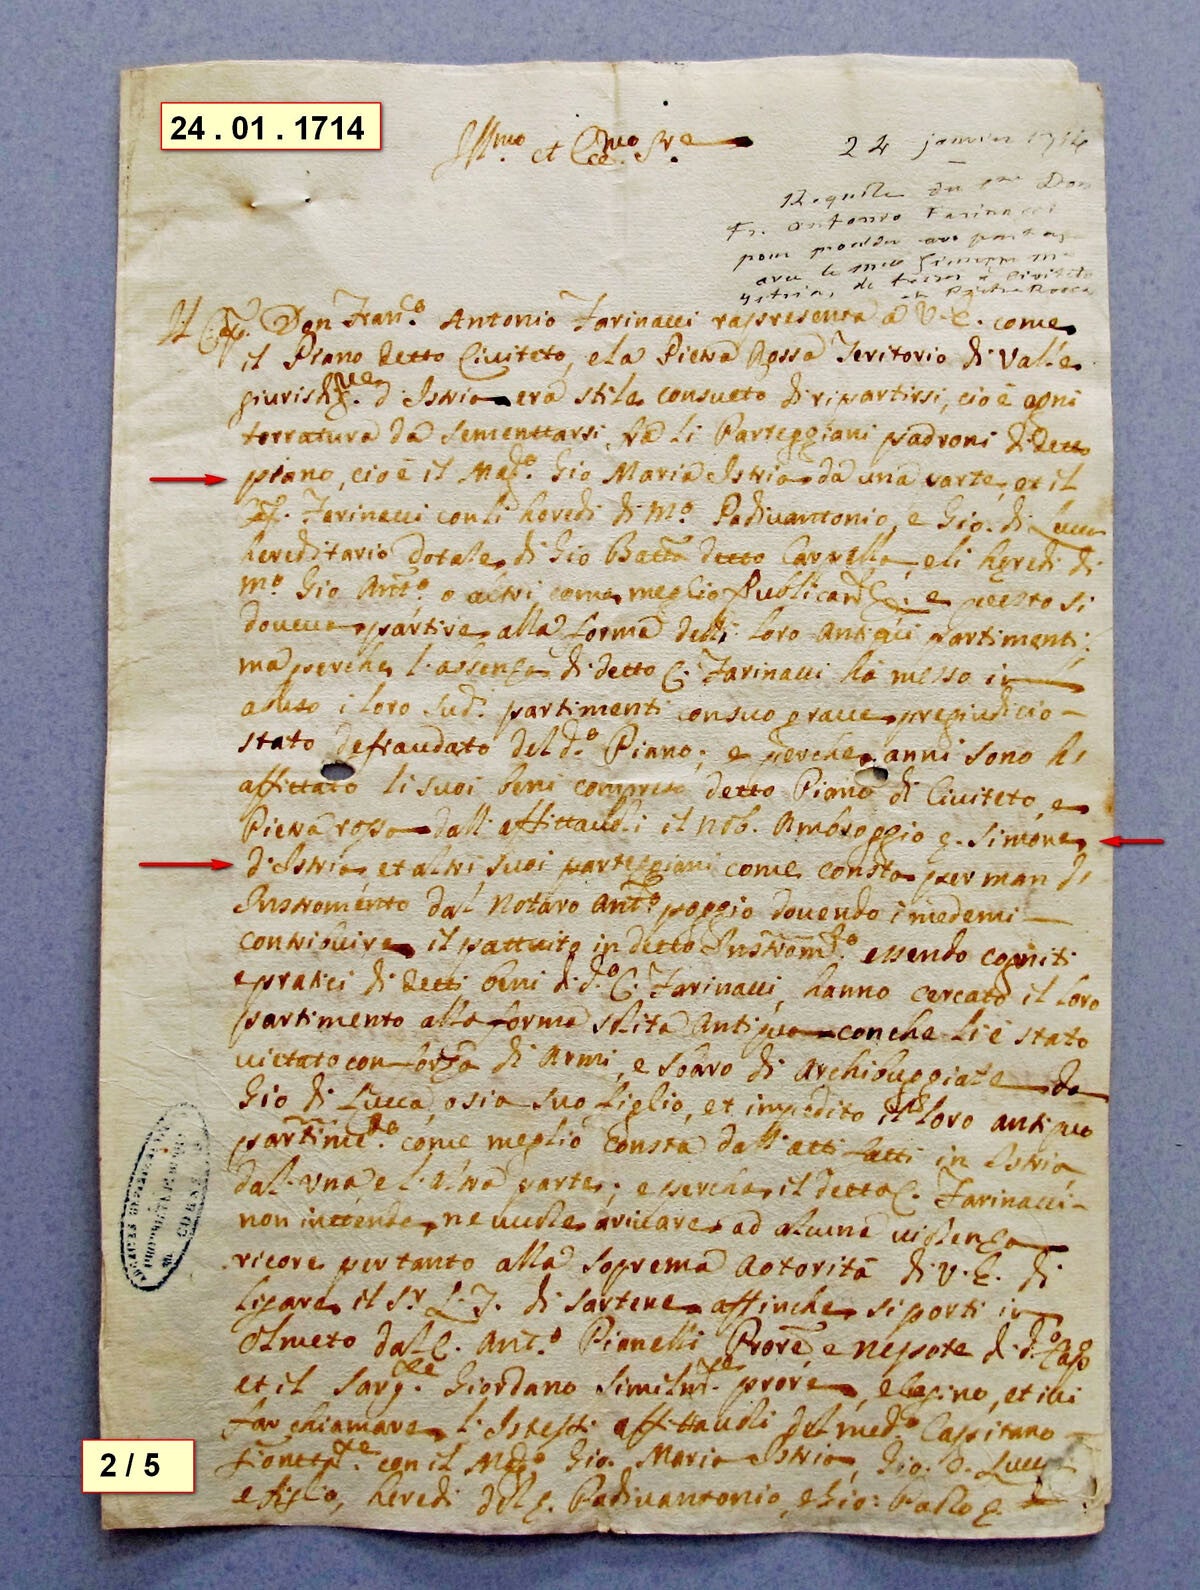 24 . 01 . 1714
Ill.mo et Ecc.mo Sr.e
24 janvier 1714
Requête du Cne Don
Fr. Antonio Farinacci
pour procéder au partage
avec le Giuseppe Ma
d'Istria, de terres à Civiteto
et Pietra Rossa
Il Cap. Don Fran.co Antonio Farinacci rapresenta à V. E. come
il Piano detto Civiteto, e la Pietra Rossa Teritorio di Valle
giurisdi.ne d'Istria era stile consueto di ripartirsi, cioè ogni
terratura da sementtarsi, fra li Parteggiani padroni di detto
piano, cioè il Mag.co Gio Maria Istria da una parte, et il
Cap. Farinacci con li heredi di m.o Padivantonio, e Gio. di Lucca
hereditario dotale di Gio Batta detto Carrella, e li heredi di
m.o Gio Ant.o o altri come meglio e questo si
doveva partire alla forma delli loro antiqui partimenti;
ma perche l'assenza di detto C. Farinacci ha messo in
abuso i loro sud.i partimenti con suo grave pregiudicio
stato defraudato del d.o Piano; e perche anni sono hà
affittato li suoi beni compreso detto Piano di Civiteto, e
Pietra rossa dalli affittavoli il Nob. Ambroggio q. Simone
d'Istria, et altri suoi parteggiani come consta per man di
Instromento dal Notaro Ant.o poggio dovendo i medemi
contribuire il pattuito in detto Instrom.to essendo cogniti
e pratici di detti beni di d.o C. Farinacci, hanno cercato il loro
partimento alla forma solita Antiqua con che li è stato
vietato con forza di Armi, e sbaro di Archibuggiate da
Gio di Lucca, o sia suo figlio, et impedito il loro antiquo
partim.to come meglio consta dall'atti fatti in Istria
dal'una e l'altra parte; e perche il detto C. Farinacci
non inttende, ne vuole arivare ad alcuna violenza
ricore per tanto alla soprema Autorità di V. E. di
ligare il Sr L. T. di Sartene affinche si porti in
Olmeto dal C. Ant.o Pianelli Prore, e nepote di d.o Cap.o
et il Sarg.te Giordano similm.te prore, e et ivi
far chiamare l'istessi affittavoli del med.o Capitano
con il Mag.co Gio. Maria Istria, Gio. di Lucca
e figlio, heredi del q. Padivantonio, e Gio: Paolo q.
ARCHIVES DÉPARTEMENTALES
PROPRIÉTÉ PUBLIQUE
CORSE
2 / 5